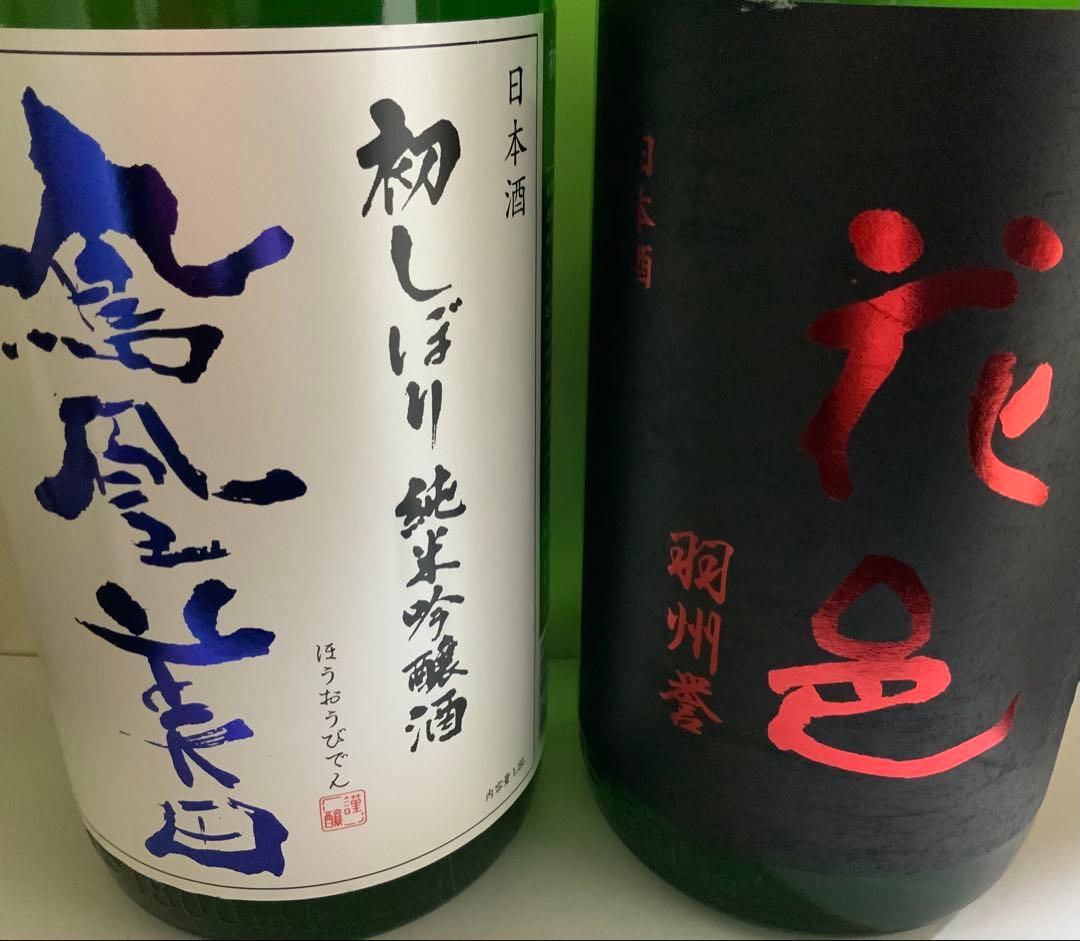 日本酒
初しぼり 純米吟醸酒
鳳凰美田
ほうおうびでん
謹醸
内容量1.8L
日本酒
花邑
羽州誉